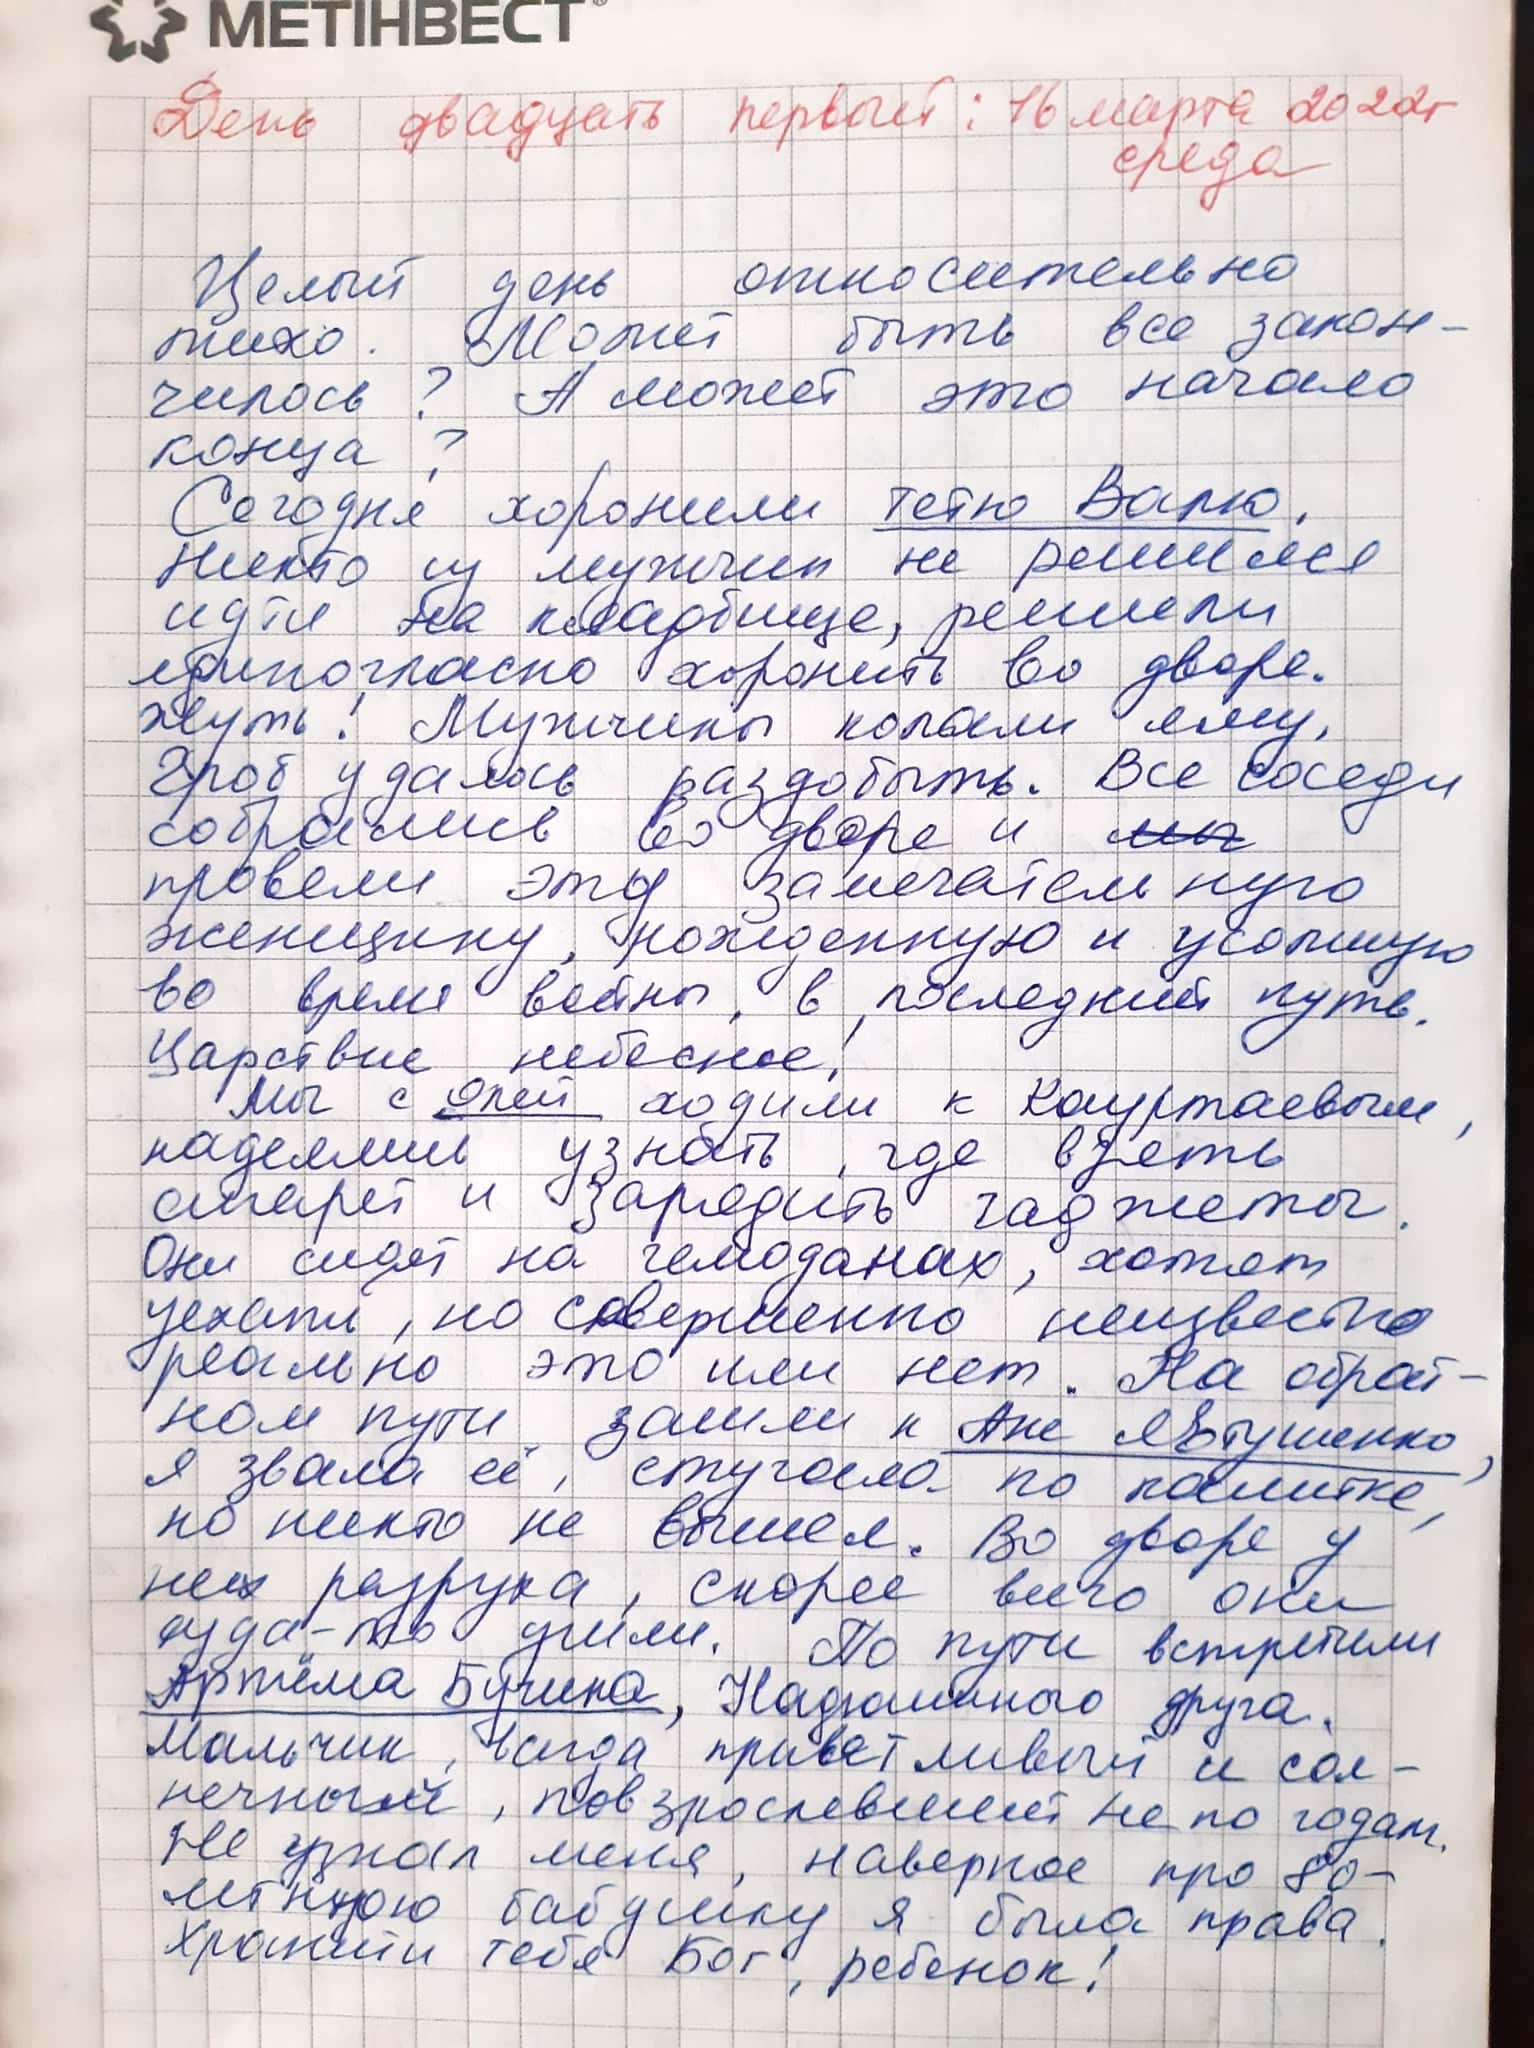 МЕТІНВЕСТ®
День двадцать первый: 16 марта 2022г
среда
Целый день относительно
тихо. Может быть все закон-
чилось? А может это начало
конца?
Сегодня хоронили тётю Валю.
Никто из мужчин не решился
идти на кладбище, решили
единогласно хоронить во дворе.
Жуть! Мужчины копали яму,
гроб удалось раздобыть. Все соседи
собрались во дворе и мы
провели эту замечательную
женщину, рожденную и усопшую
во время войны, в последний путь.
Царствие небесное!
Мы с Олей ходили к Кауртаевым,
надеялись узнать, где взять
сигарет и зарядить гаджеты.
Они сидят на чемоданах, хотят
уехать, но совершенно неизвестно
реально это или нет. На обрат-
ном пути зашли к Ане Явтушенко,
я звала её, стучала по калитке,
но никто не вышел. Во дворе у
них разруха, скорее всего они
куда-то ушли. По пути встретили
Артёма Бучина, Надюшиного друга.
Мальчик, всегда приветливый и сол-
нечный, повзрослевший не по годам.
Не узнал меня, наверное про 80-
летнюю бабушку я была права.
Храни тебя Бог, ребенок!